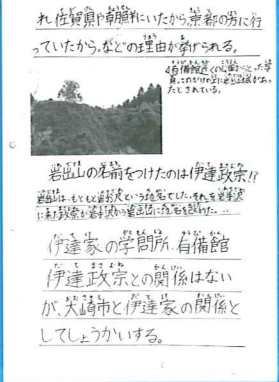 れ、佐賀県や朝鮮にいたから。京都の方に行
っていたから。などの理由が挙げられる。
↑有備館近くの
とされている。
岩出山の名前をつけたのは伊達政宗!?
岩出山は、もともと岩手沢という地名でした。それを岩手沢
に来た政宗が岩手沢から岩出山に地名を
伊達家の学問所、有備館
伊達政宗との関係はない
が、大崎市と伊達家の関係と
してしょうかいする。